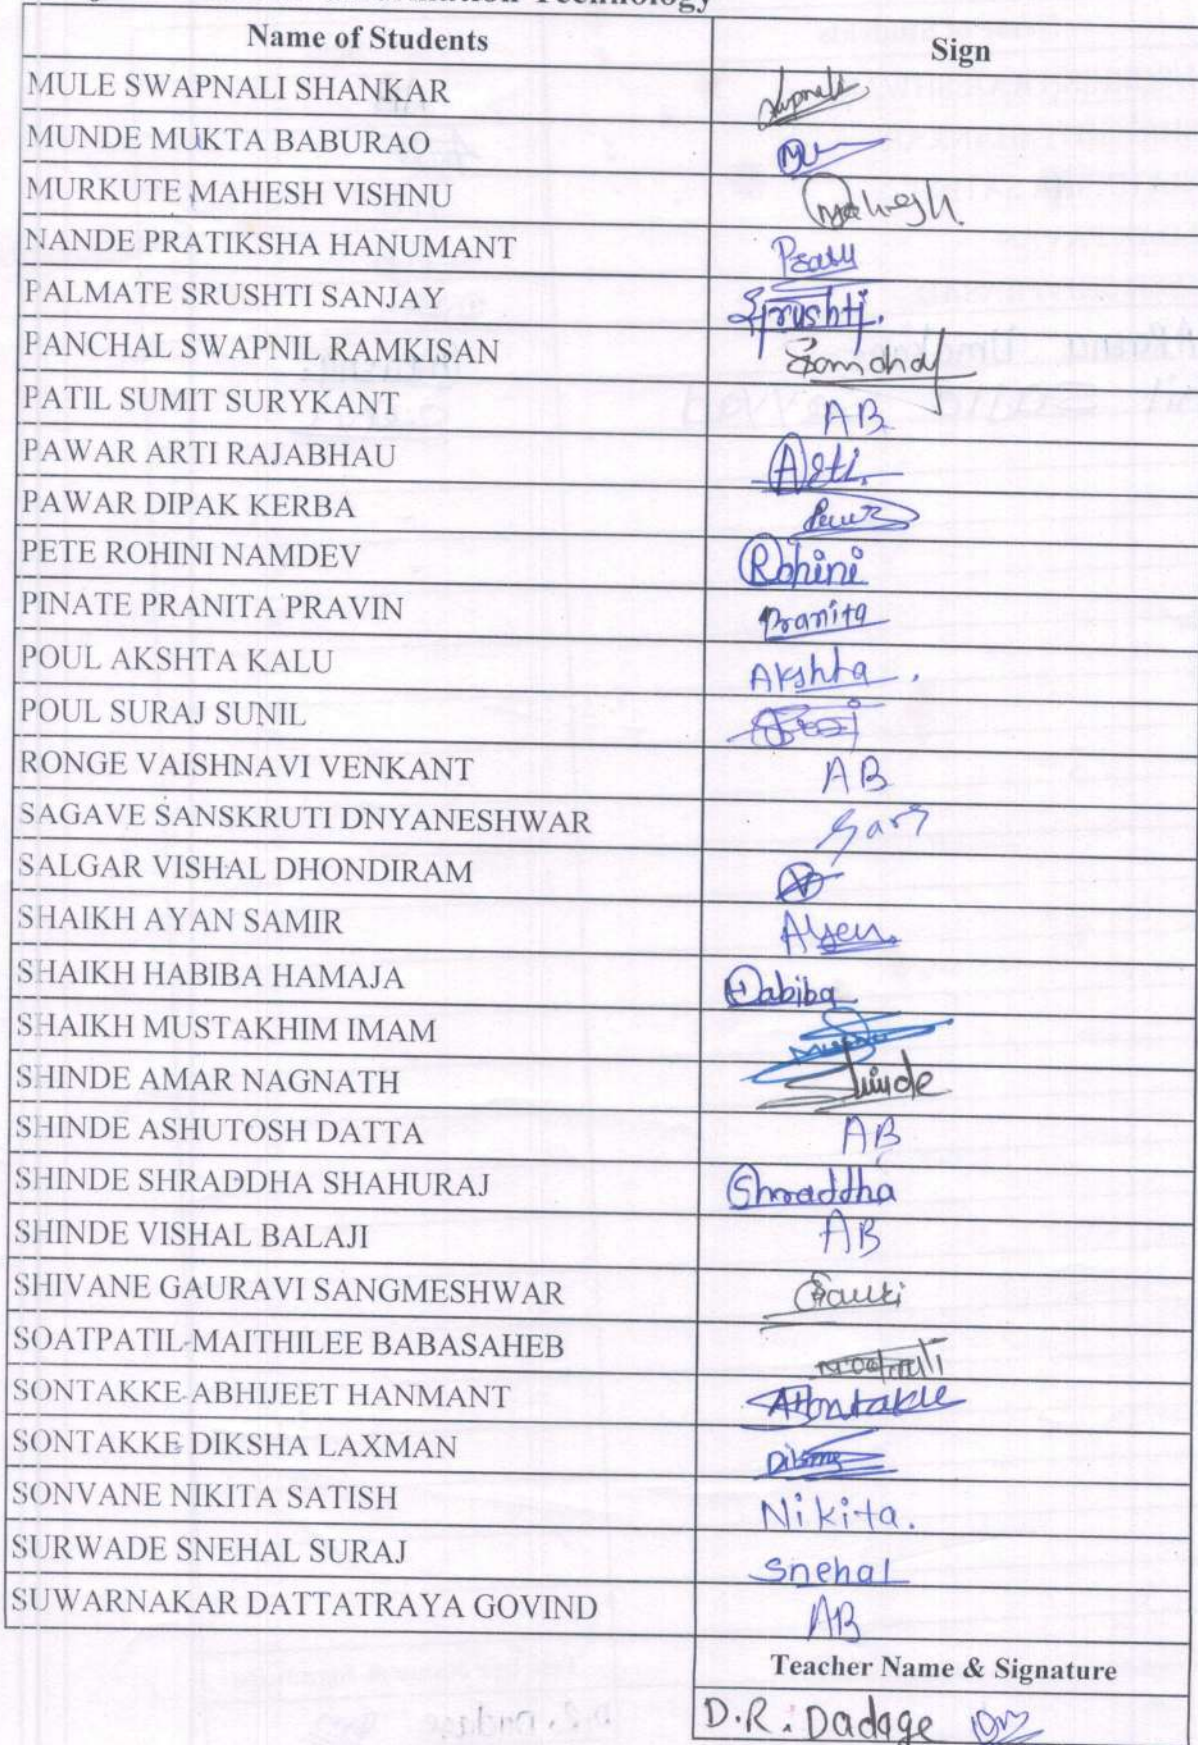 Technology
Name of Students Sign
MULE SWAPNALI SHANKAR Swapnali
MUNDE MUKTA BABURAO
MURKUTE MAHESH VISHNU Mahesh
NANDE PRATIKSHA HANUMANT
PALMATE SRUSHTI SANJAY Srushti.
PANCHAL SWAPNIL RAMKISAN
PATIL SUMIT SURYKANT AB
PAWAR ARTI RAJABHAU Arti.
PAWAR DIPAK KERBA
PETE ROHINI NAMDEV Rohini
PINATE PRANITA PRAVIN Pranita
POUL AKSHTA KALU Akshta.
POUL SURAJ SUNIL
RONGE VAISHNAVI VENKANT AB
SAGAVE SANSKRUTI DNYANESHWAR
SALGAR VISHAL DHONDIRAM
SHAIKH AYAN SAMIR
SHAIKH HABIBA HAMAJA Habiba
SHAIKH MUSTAKHIM IMAM
SHINDE AMAR NAGNATH Shinde
SHINDE ASHUTOSH DATTA AB
SHINDE SHRADDHA SHAHURAJ Shraddha
SHINDE VISHAL BALAJI AB
SHIVANE GAURAVI SANGMESHWAR
SOATPATIL MAITHILEE BABASAHEB
SONTAKKE ABHIJEET HANMANT
SONTAKKE DIKSHA LAXMAN
SONVANE NIKITA SATISH Nikita.
SURWADE SNEHAL SURAJ Snehal
SUWARNAKAR DATTATRAYA GOVIND AB
Teacher Name & Signature
D.R. Dadage